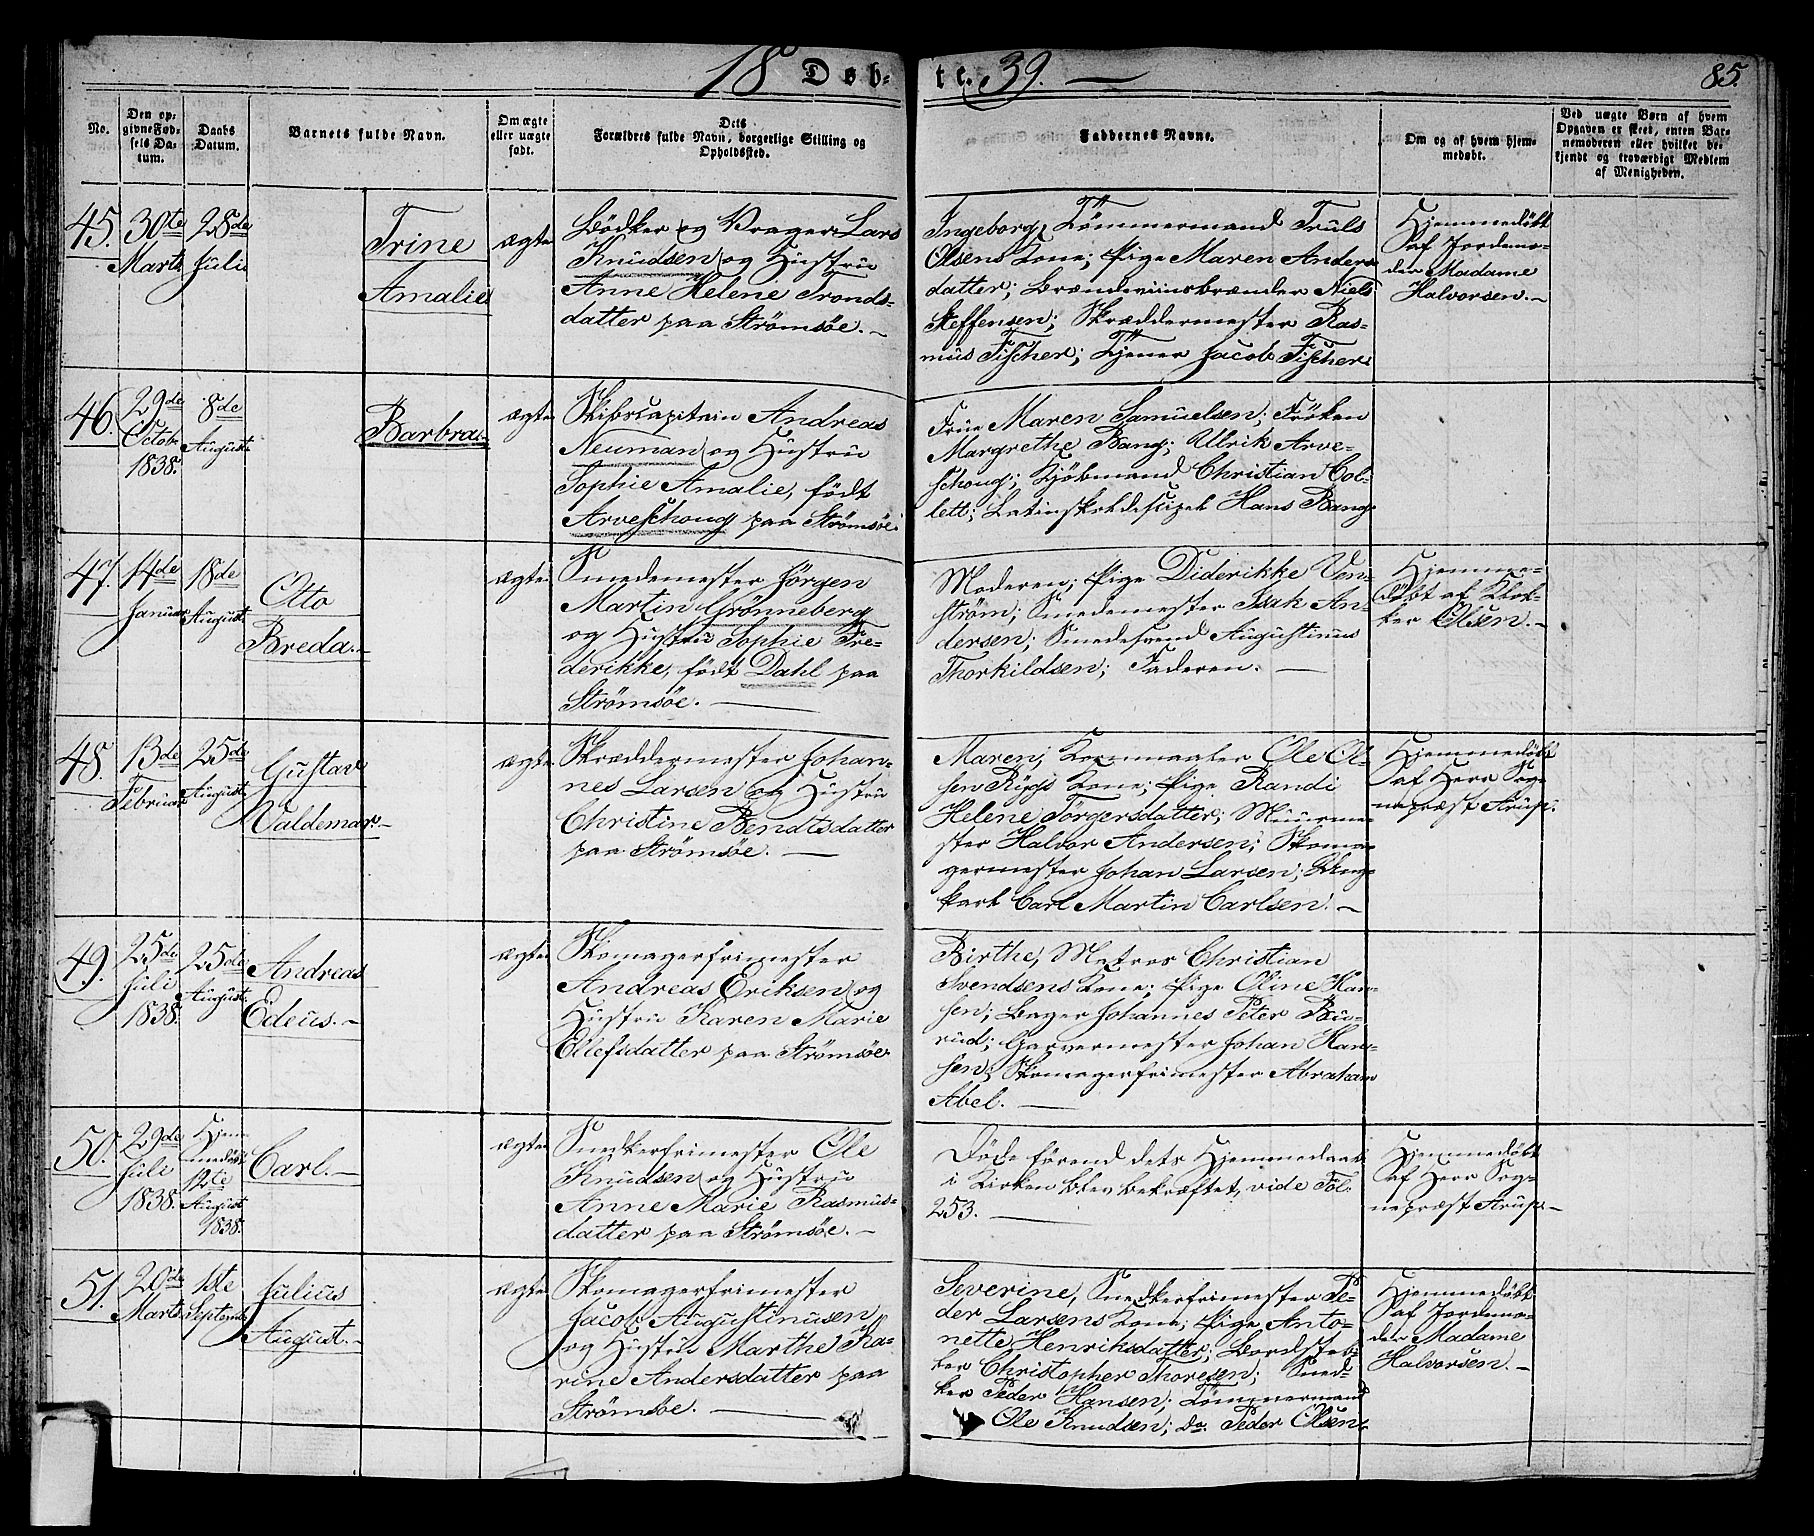 18 Døb-
te. 39. —
85.
No.
Den op-
givne Fød-
sels Da-
tum.
Daabs
Datum.
Barnets fulde Navn.
Om ægte
eller uægte
født.
Dets
Forældres fulde Navn, borgerlige Stilling og
Opholdssted.
Faddernes Navne.
Om og af hvem hjem-
medøbt.
Ved uægte Børn af hvem
Opgaven er skeet, enten Bar-
nemoderen eller hvilket be-
kjendt og troværdigt Medlem
af Menigheden.
45.
30te
Marts
28de
Juli
Trine
Amalie
ægte
Bødker og Vrager Lars
Knudsen og Hustru
Anne Helene Tronds-
datter paa Strømsøe. —
Ingeborg, Tømmermand Truls
Olsens Kone; Pige Maren Anders-
datter; Brændeviinsbrænder Niels
Steffensen; Skræddermester Ras-
mus Fischer; Tjener Jacob Fischer.
Hjemmedøbt
af Jordemo-
der Madame
Halvorsen. —
46.
29de
Octob.
1838.
8de
August.
Barbra. —
ægte
Skibscapitain Andreas
Neuman og Hustru
Sophie Amalie, født
Arveschoug paa Strømsøe.
Frue Maren Samuelsen; Frøken
Margrethe Bang; Ulrik Arve-
schoug; Kjøbmand Christian Col-
lett; Latinskoledisipel Hans Bang.
47.
14de
Januar
18de
August.
Otto
Breda. —
ægte
Smedemester Jørgen
Martin Grønneberg
og Hustru Sophie Fre-
derikke, født Dahl paa
Strømsøe. —
Moderen; Pige Diderikke Ven-
strøm; Smedemester Isak An-
dersen; Smedesvend Augustinus
Thorkildsen; Faderen. —
Hjemme-
døbt af Klok-
ker Olsen. —
48.
13de
Februar
25de
August.
Gustav
Valdemar. —
ægte
Skræddermester Johan-
nes Larsen og Hustru
Christine Bendtsdatter
paa Strømsøe. —
Maren, Kornmaaler Ole Ol-
sen Riggs Kone; Pige Randi
Helene Tørgersdatter; Muurme-
ster Halvor Andersen; Skoma-
germester Johan Larsen; Ung-
karl Carl Martin Carlsen. —
Hjemmedøbt
af Herr Sog-
nepræst Arup.
49.
25de
Juli
1838.
25de
August.
Andreas
Edeüs. —
ægte
Skomagerfrimester
Andreas Eriksen og
Hustru Karen Marie
Ellefsdatter paa Strømsøe
Birthe, Matros Christian
Svendsens Kone; Pige Oline Han-
sen; Bager Johannes Peter Buu-
rud; Garvermester Johan Han-
sen; Skomagerfrimester Abraham
Abel. —
50.
29de
Juli
1838.
Hjem-
medøbt
12te
August
1838.
Carl. —
ægte
Snedkerfrimester Ole
Knudsen og Hustru
Anne Marie Rasmus-
datter paa Strømsøe. —
Døde førend dets Hjemmedaab
i Kirken blev bekræftet, vide Fol.
253. —
Hjemmedøbt
af Herr Sog-
nepræst Arup. —
51.
20de
Marts
1ste
Septemb.
Julius
August. —
ægte
Skomagerfrimester
Jacob Augustinusen
og Hustru Marthe Ka-
rine Andersdatter paa
Strømsøe. —
Severine, Snedkerfrimester Pe-
der Larsens Kone; Pige Anto-
nette Henriksdatter; Bordstab-
ler Christopher Thoresen; Sned-
ker Peder Hansen; Tømmermand
Ole Knudsen; Do. Peder Olsen.
Hjemmedøbt
af Jordemo-
der Madame
Halvorsen. —